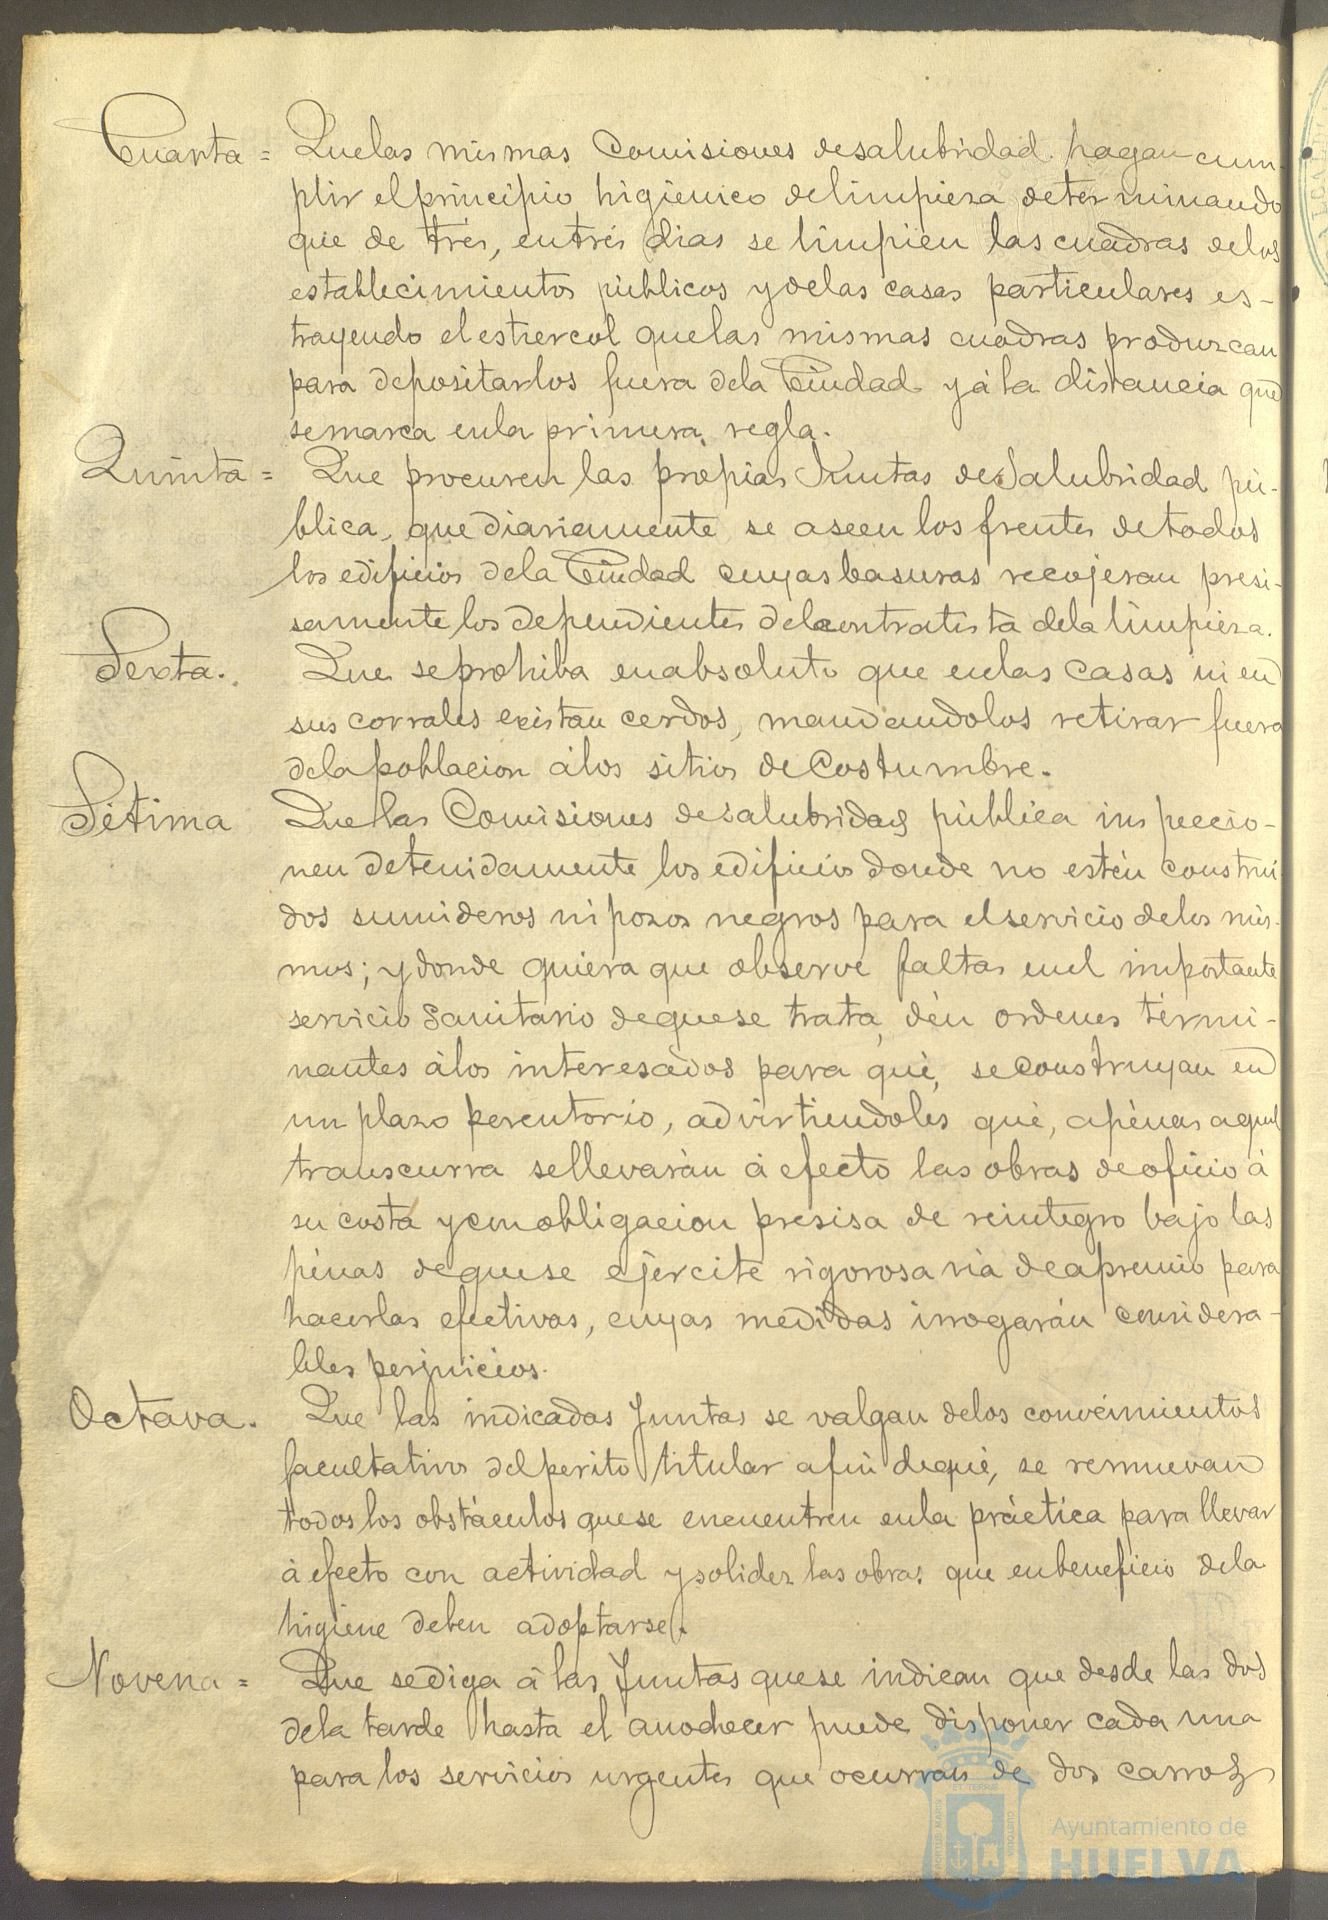 Cuarta = Que las mismas Comisiones de salubridad hagan cum-
plir el principio higiénico de limpieza determinando
que de tres, en tres dias se limpien las cuadras de los
establecimientos públicos y de las casas particulares es-
trayendo el estiercol que las mismas cuadras produzcan
para depositarlos fuera de la Ciudad y á la distancia que
se marca en la primera regla.
Quinta = Que procuren las propias Juntas de Salubridad pú-
blica, que diariamente se aseen los frentes de todos
los edificios de la Ciudad cuyas basuras recojeran presi-
samente los dependientes del contratista de la limpieza.
Sexta. Que se prohiba en absoluto que en las casas ni en
sus corrales existan cerdos, mandandolos retirar fuera
de la poblacion á los sitios de Costumbre.
Sétima Que las Comisiones de salubridad pública inspeccio-
nen detenidamente los edificios donde no estén construi
dos sumideros ni pozos negros para el servicio de los mis-
mos; y donde quiera que observe faltas en el importante
servicio Sanitario de que se trata, dén ordenes térmi-
nantes á los interesados para qué, se construyan en
un plazo perentorio, advirtiendoles qué, apénas aquel
transcurra se llevarán á efecto las obras de oficio á
su costa y con obligacion presisa de reintegro bajo las
pénas de que se ejercite rigorosa via de apremio para
hacerlas efectivas, cuyas medidas irrogarán considera-
bles perjuicios.
Octava. Que las indicadas Juntas se valgan de los conocimientos
facultativos del perito titular afin de qué, se remuevan
todos los obstáculos que se encuentren en la práctica para llevar
á efecto con actividad y solidez las obras que en beneficio de la
higiene deben adoptarse.
Novena = Que se diga á las Juntas que se indican que desde las dos
de la tarde hasta el anochecer puede disponer cada una
para los servicios urgentes que ocurran de dos carros
Ayuntamiento de
HUELVA